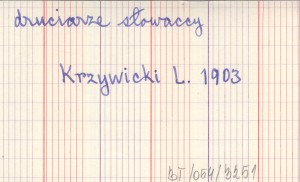 druciarze słowaccy
Krzywicki L. 1903
BT/054/3251